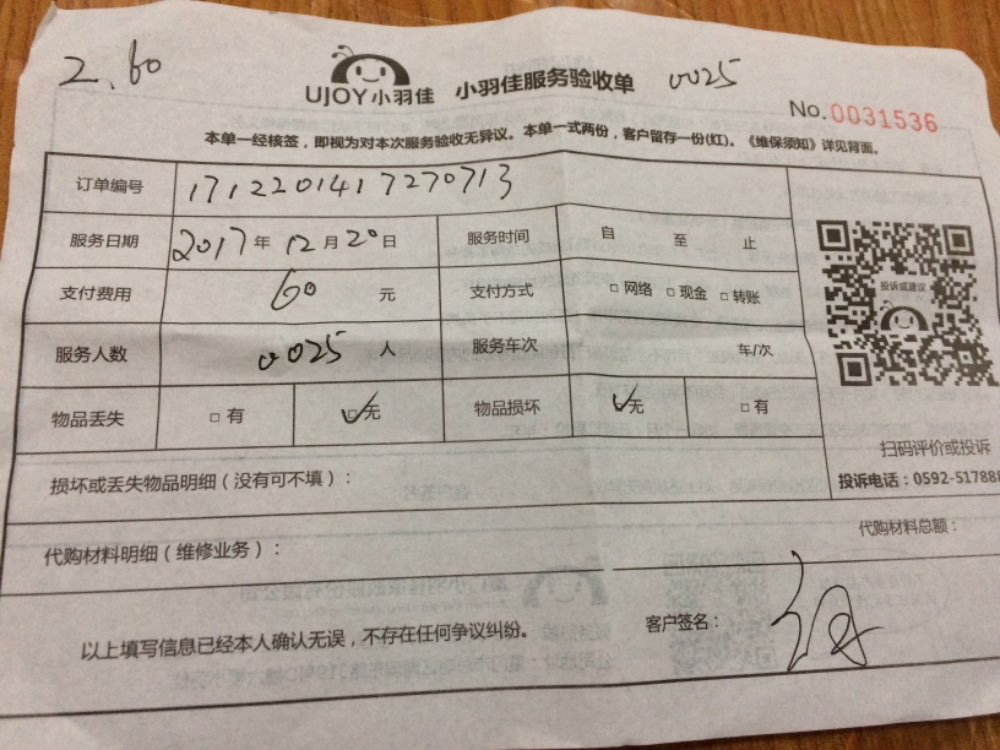 2.60
UJOY小羽佳 小羽佳服务验收单 0025
No.0031536
本单一经核签，即视为对本次服务验收无异议。本单一式两份，客户留存一份(红)。《维保须知》详见背面。
订单编号 1712201417270713
服务日期 2017年12月20日 服务时间 自 至 止
支付费用 60 元 支付方式 □网络 □现金 □转账
投诉或建议
服务人数 0025 人 服务车次 车/次
物品丢失 □有 ☑无 物品损坏 ☑无 □有
扫码评价或投诉
损坏或丢失物品明细（没有可不填）：
投诉电话：0592-517888
代购材料明细（维修业务）： 代购材料总额：
以上填写信息已经本人确认无误，不存在任何争议纠纷。 客户签名：